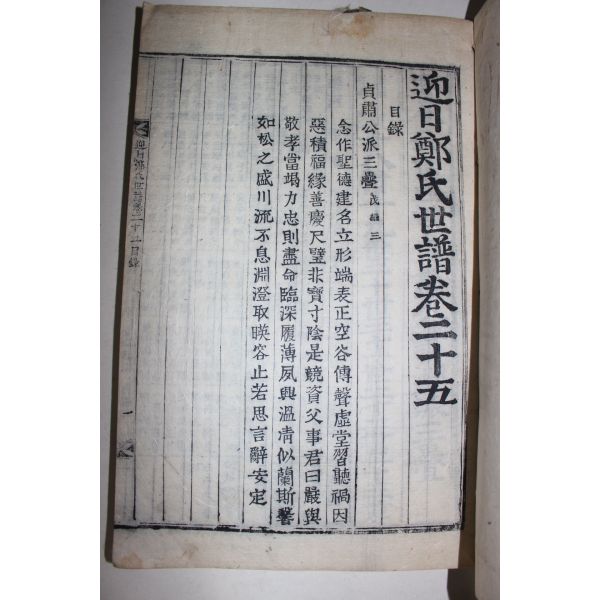 迎日鄭氏世譜卷二十五
目錄
貞肅公派三疊
念作聖德建名立形端表正空谷傳聲虛堂習聽禍因
惡積福緣善慶尺璧非寶寸陰是競資父事君曰嚴與
敬孝當竭力忠則盡命臨深履薄夙興溫凊似蘭斯馨
如松之盛川流不息淵澄取暎容止若思言辭安定
迎日鄭氏世譜卷二十二目錄
一